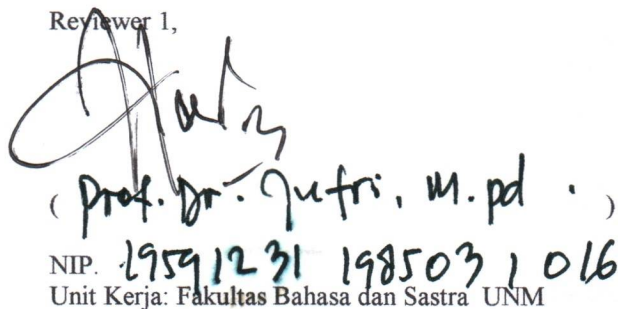 Reviewer 1,
( Prof. Dr. Jufri, M.pd . )
NIP. 19591231 198503 1 016
Unit Kerja: Fakultas Bahasa dan Sastra UNM